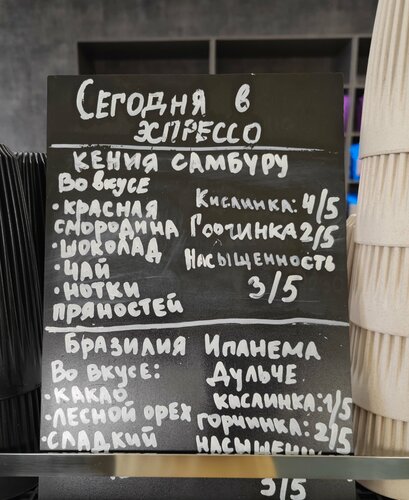 Сегодня в
эспрессо
Кения Самбуру
Во вкусе
• красная
смородина
• шоколад
• чай
• нотки
пряностей
Кислинка: 4/5
Горчинка 2/5
Насыщенность
3/5
Бразилия Ипанема
Дульче
Во вкусе:
• какао
• лесной орех
• сладкий
кислинка: 1/5
горчинка: 2/5
насыщенн
3/5